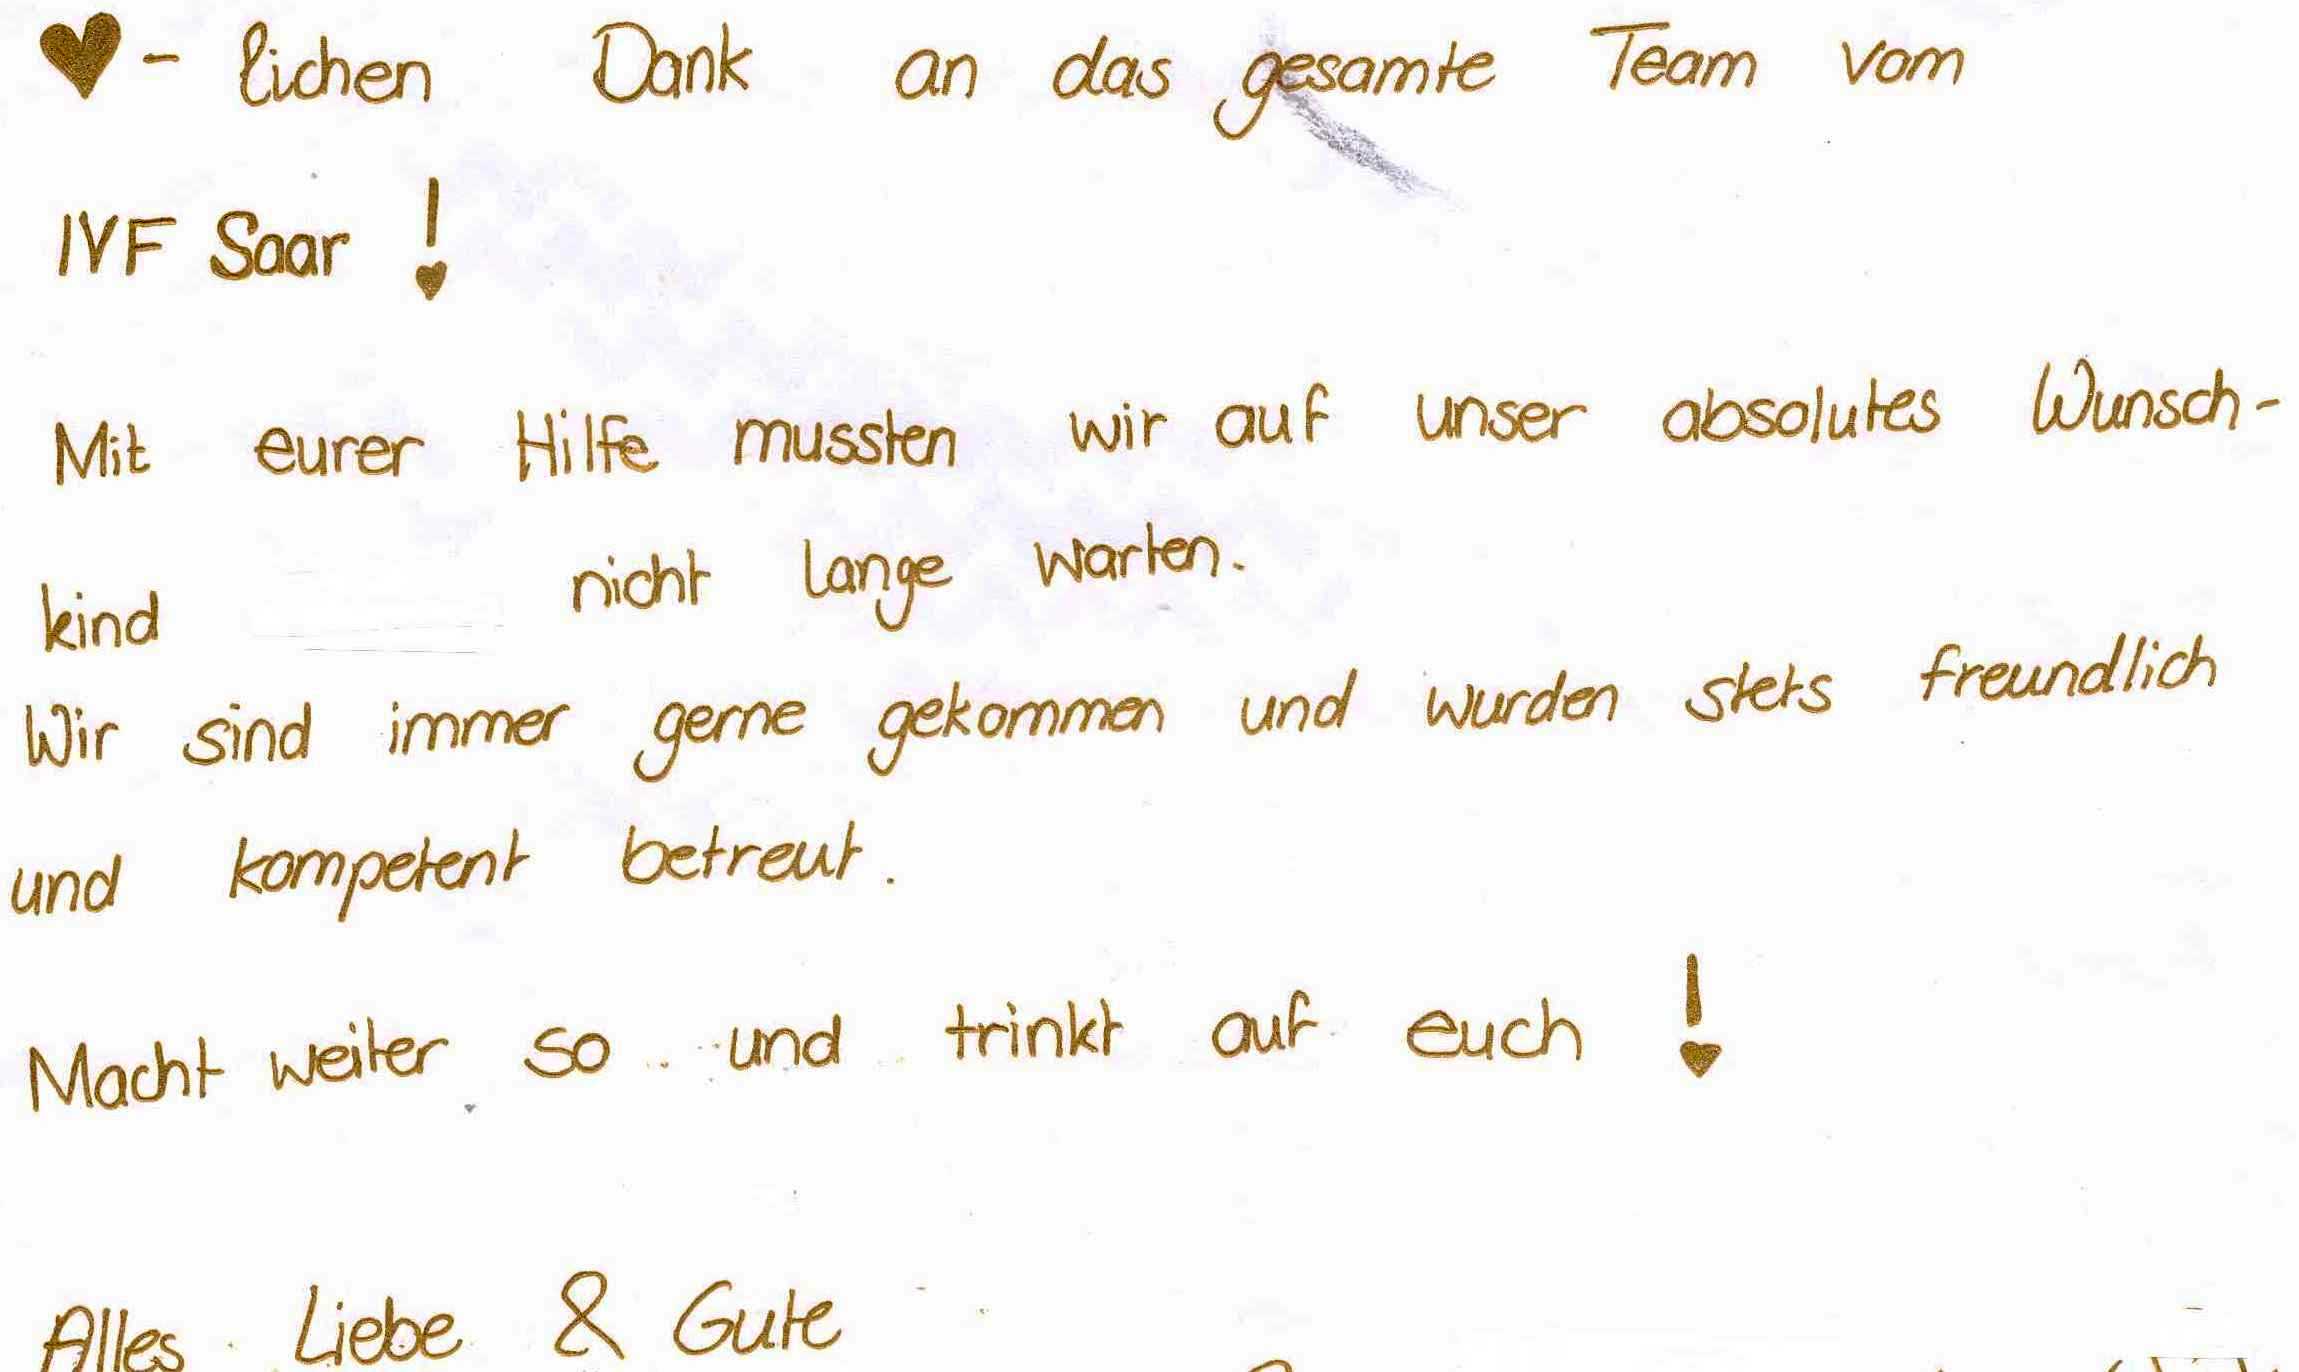 ♥- lichen Dank an das gesamte Team vom
IVF Saar !
Mit eurer Hilfe mussten wir auf unser absolutes Wunsch-
kind nicht lange warten.
Wir sind immer gerne gekommen und wurden stets freundlich
und kompetent betreut.
Macht weiter so und trinkt auf euch !
Alles Liebe & Gute